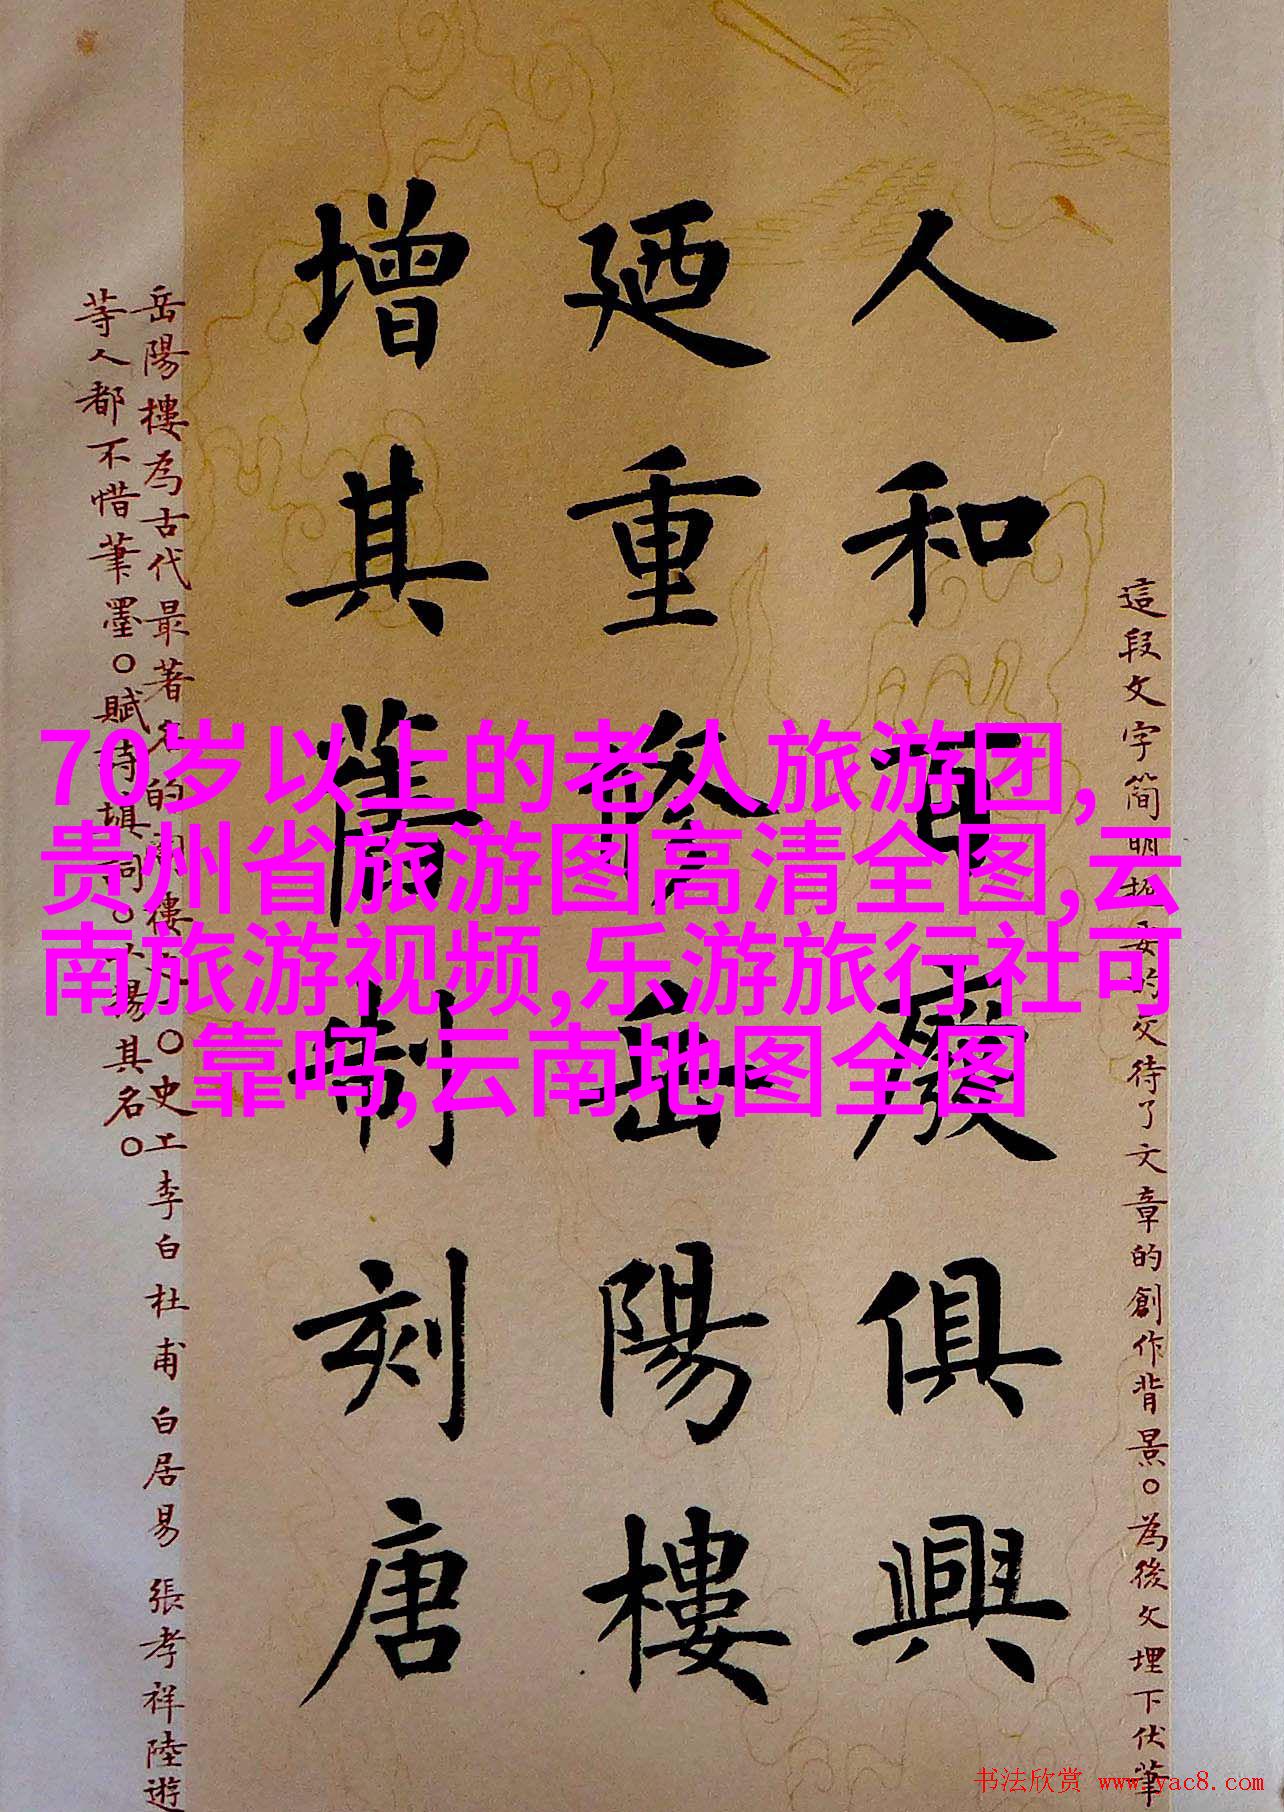 這段文字简明扼要的交待了文章的創作背景。為後文埋下伏筆
人和百廢俱興
廼重修岳陽樓
增其舊制刻唐
岳陽樓為古代最著名的樓。史上李白杜甫白居易張孝祥陸遊
等人都不惜筆墨。賦詩填詞。以揚其名。
70岁以上的老人旅游团,
贵州省旅游图高清全图,云
南旅游视频,乐游旅行社可
靠吗,云南地图全图
书法欣赏 www.yac8.com